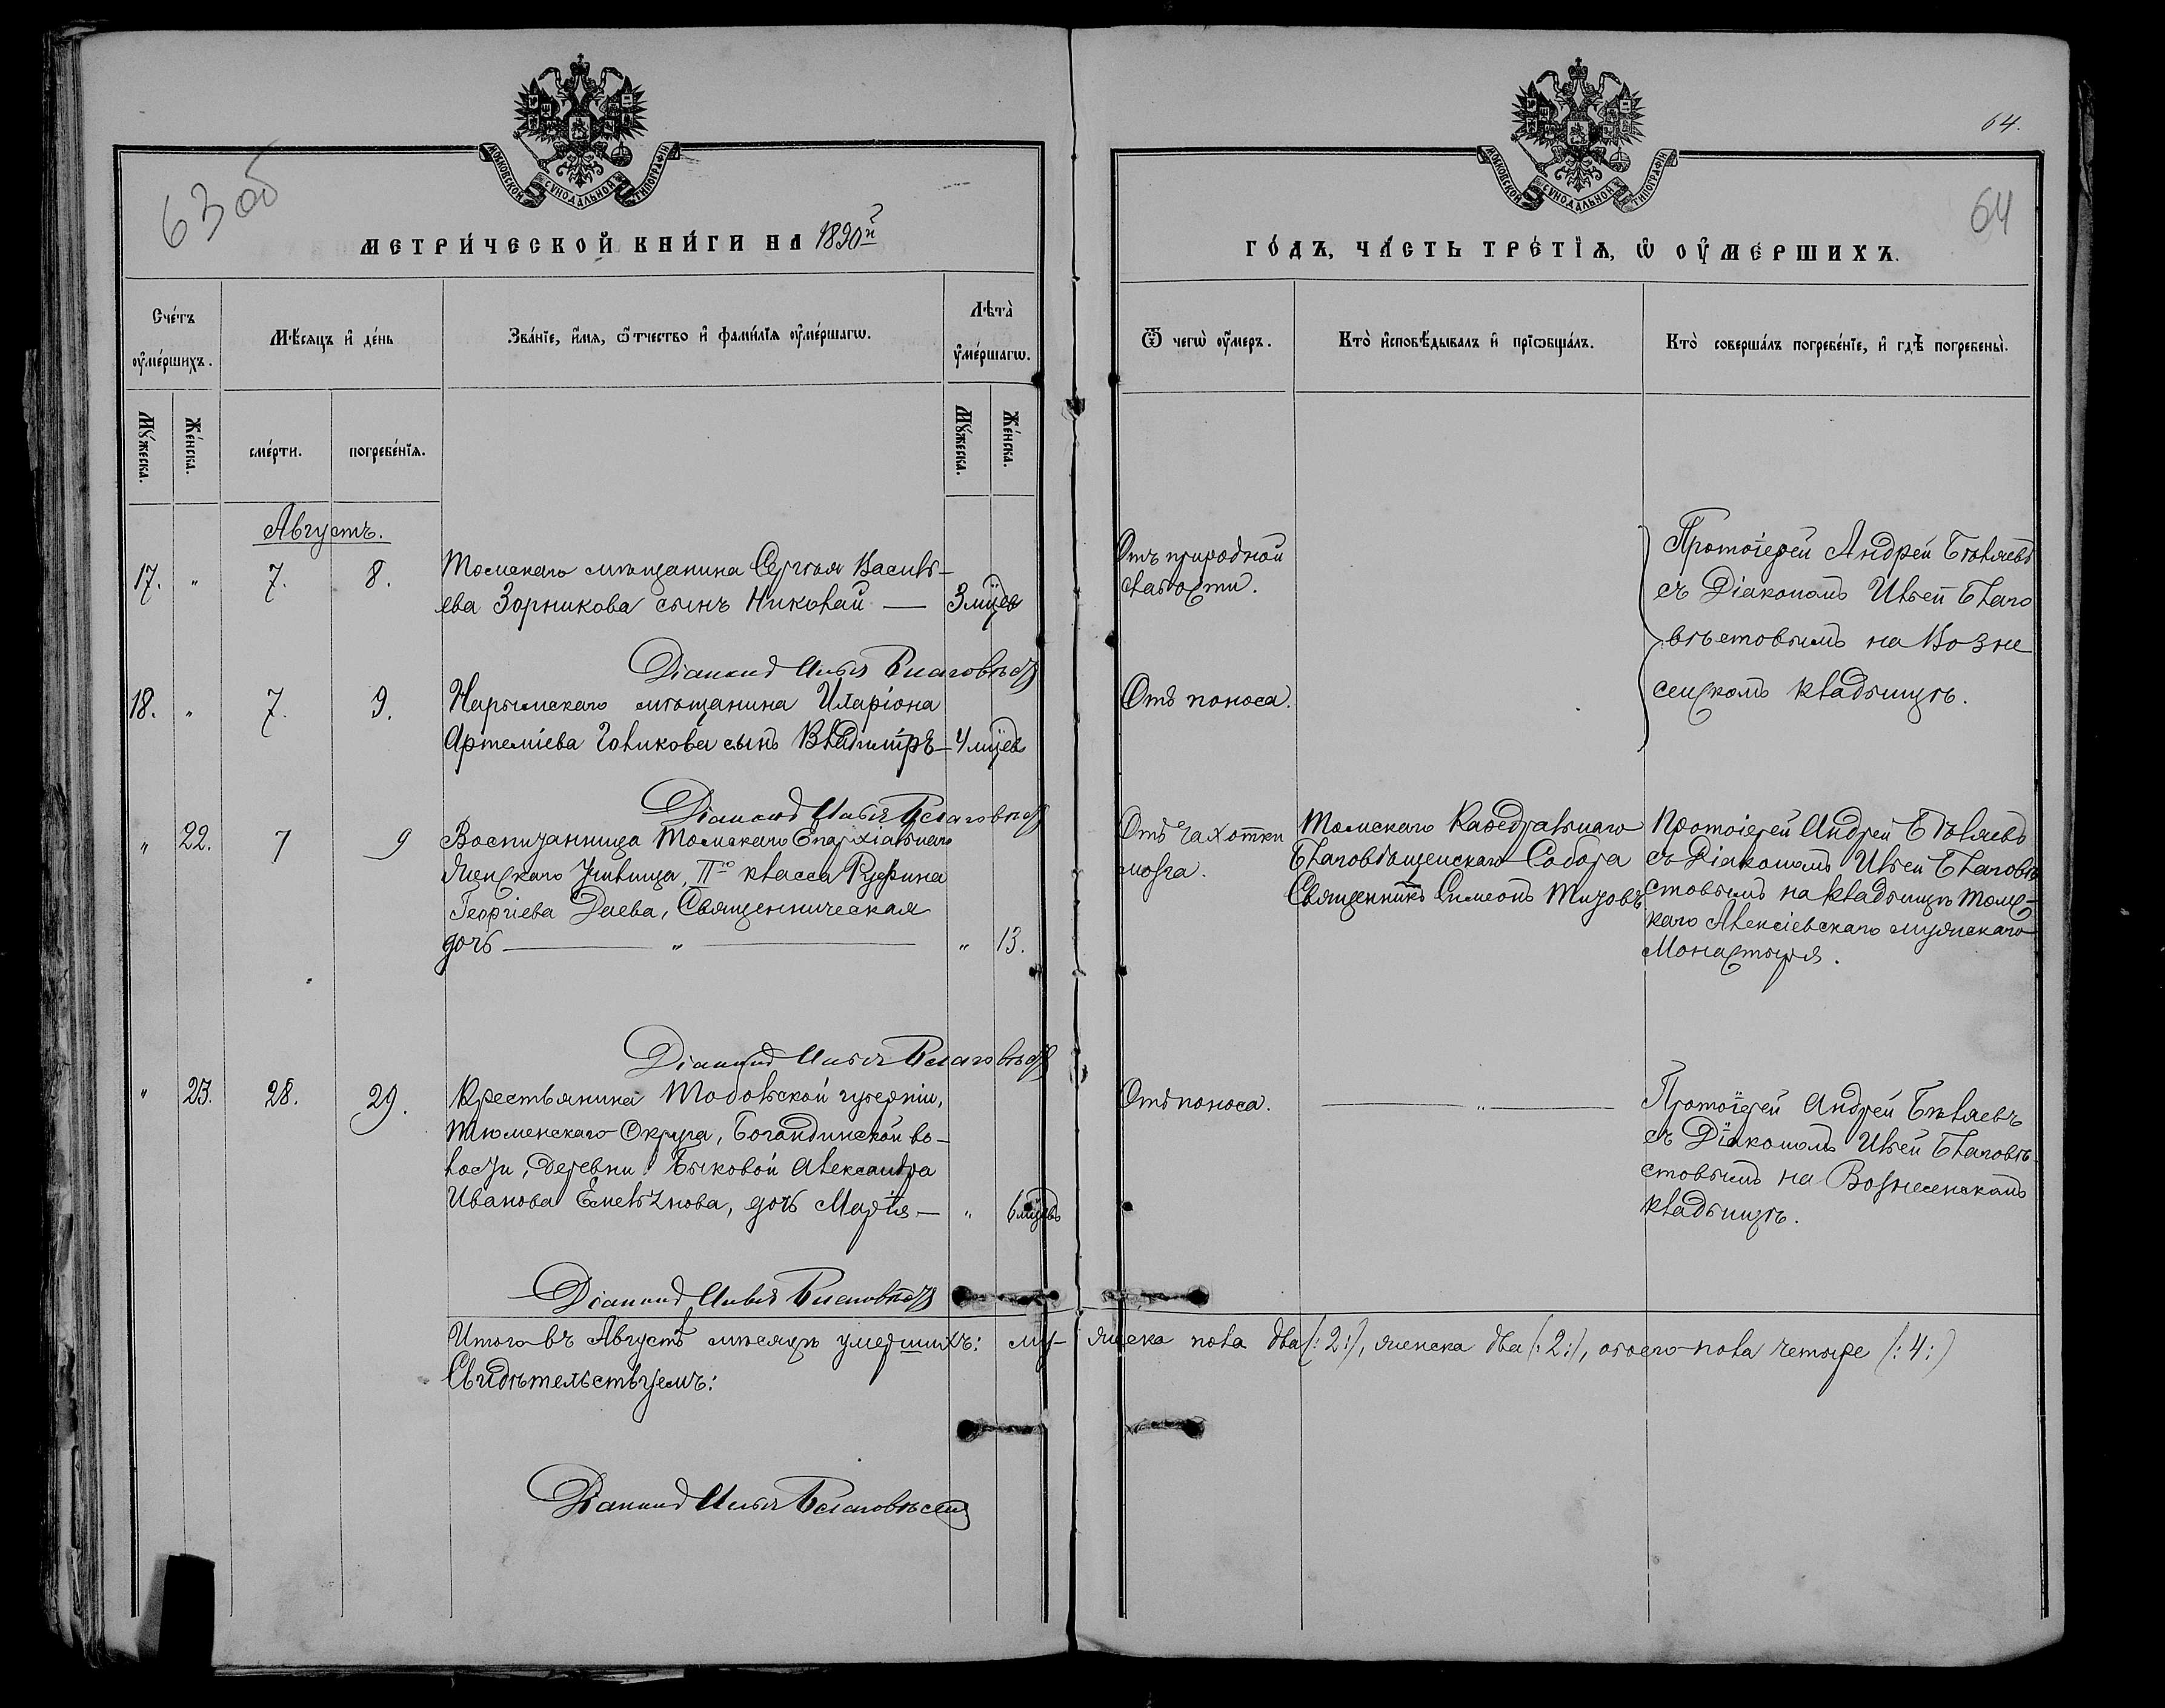 63 об
МОСКОВСКОЙ СѴНОДАЛЬНОЙ ТИПОГРАФІИ
МЕТРИ́ЧЕСКОЙ КНИ́ГИ НА 1890й
Сче́тъ ᲂу҆ме́ршихъ.
Мѣ́сяцъ и҆ де́нь
Зва́нїе, и҆́мѧ, ѻ҆́тчество и҆ фами́лїѧ ᲂу҆ме́ршагѡ.
Лѣта̀ ᲂу҆ме́ршагѡ.
Мꙋ́жеска.
Же́нска.
сме́рти.
погребе́нїѧ.
Мꙋ́жеска.
Же́нска.
Августъ.
17. " 7. 8. Томскаго мѣщанина Сергѣя Василь-
ева Зорникова сынъ Николай — 3 мцев
Діаконъ Илья Благовѣстов
18. " 7. 9. Нарымскаго мѣщанина Иларіона
Артеміева Голикова сынъ Владиміръ — 4 мцевъ
Діаконъ Илья Благовѣстов
" 22. 7 9 Воспитанница Томскаго Епархіальнаго
Женскаго Училища, IIго класса Руфина
Георгіева Даева, Священническая
дочь — " — " 13.
Діаконъ Илья Благовѣстов
" 23. 28. 29. Крестьянина Тобольской губерніи,
Тюменскаго Округа, Богандинской во-
лости, деревни Быковой Александра
Иванова Емельянова, дочь Марія — " 6 мцевъ
Діаконъ Илья Благовѣстов
Итого въ Августѣ мѣсяцѣ умершихъ: му-
Свидѣтельствуемъ:
Діаконъ Илья Благовѣстов
64.
64
МОСКОВСКОЙ СѴНОДАЛЬНОЙ ТИПОГРАФІИ
ГО́ДЪ, ЧА́СТЬ ТРЕ́ТЇѦ, Ѡ҆ ОУ҆МЕ́РШИХЪ.
Ѿ чегѡ̀ ᲂу҆́меръ.
Кто̀ и҆сповѣ́дывалъ и҆ прїѡбща́лъ.
Кто̀ соверша́лъ погребе́нїе, и҆ гдѣ̀ погребены̀.
Отъ природной
слабости.
Протоіерей Андрей Бѣляевъ
съ Діакономъ Ильей Благо
вѣстовымъ на Возне
сенскомъ кладбищѣ.
Отъ поноса.
Отъ чахотки
мозга.
Томскаго Каѳедральнаго
Благовѣщенскаго Собора
Священникъ Симеонъ Титовъ
Протоіерей Андрей Бѣляевъ
съ Діакономъ Ильей Благовѣ
стовымъ на кладбищѣ Томс-
каго Алексіевскаго мужскаго
Монастыря.
Отъ поноса.
— " —
Протоіерей Андрей Бѣляевъ
съ Діакономъ Ильей Благовѣ-
стовымъ на Вознесенскомъ
кладбищѣ.
жеска пола два (: 2 :), женска два (: 2 :), обоего пола четыре (: 4 :)